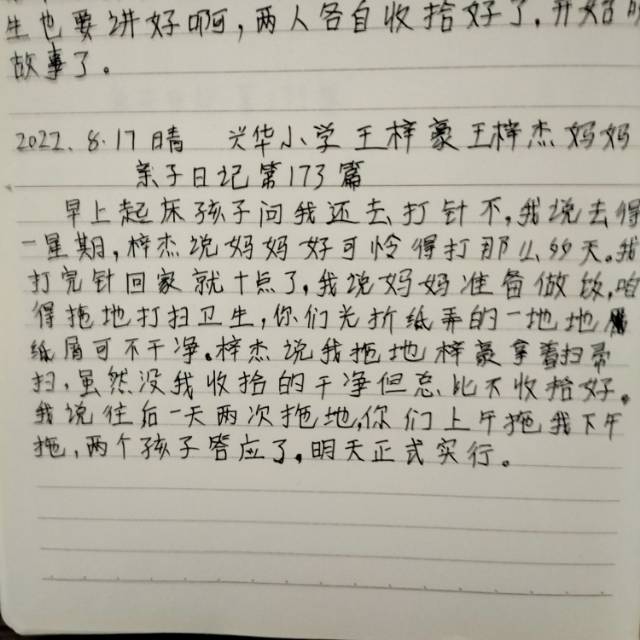 生也要讲好啊，两人各自收拾好了，开始
故事了。
2022.8.17 晴 兴华小学 王梓豪 王梓杰 妈妈
亲子日记第173篇
早上起床孩子问我还去打针不，我说去得
一星期，梓杰说妈妈好可怜得打那么多天。我
打完针回家就十点了，我说妈妈准备做饭，咱
得拖地打扫卫生，你们光折纸弄的一地地
纸屑可不干净。梓杰说我拖地梓豪拿着扫帚
扫，虽然没我收拾的干净但总比不收拾好。
我说往后一天两次拖地，你们上午拖我下午
拖，两个孩子答应了，明天正式实行。